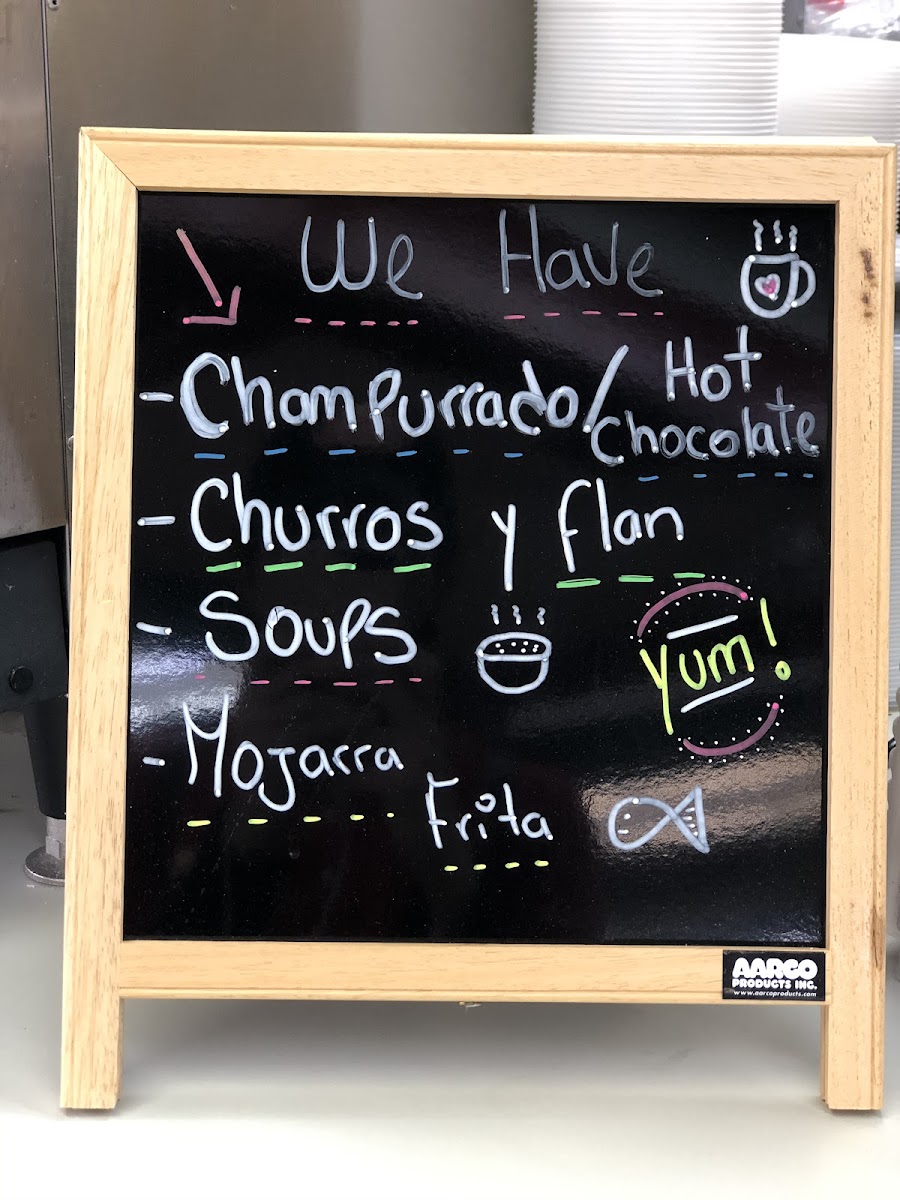 We Have
- Champurrado/ Hot
Chocolate
- Churros y flan
- Soups
Yum!
- Mojarra
Frita
AARCO
PRODUCTS INC.
www.aarcoproducts.com